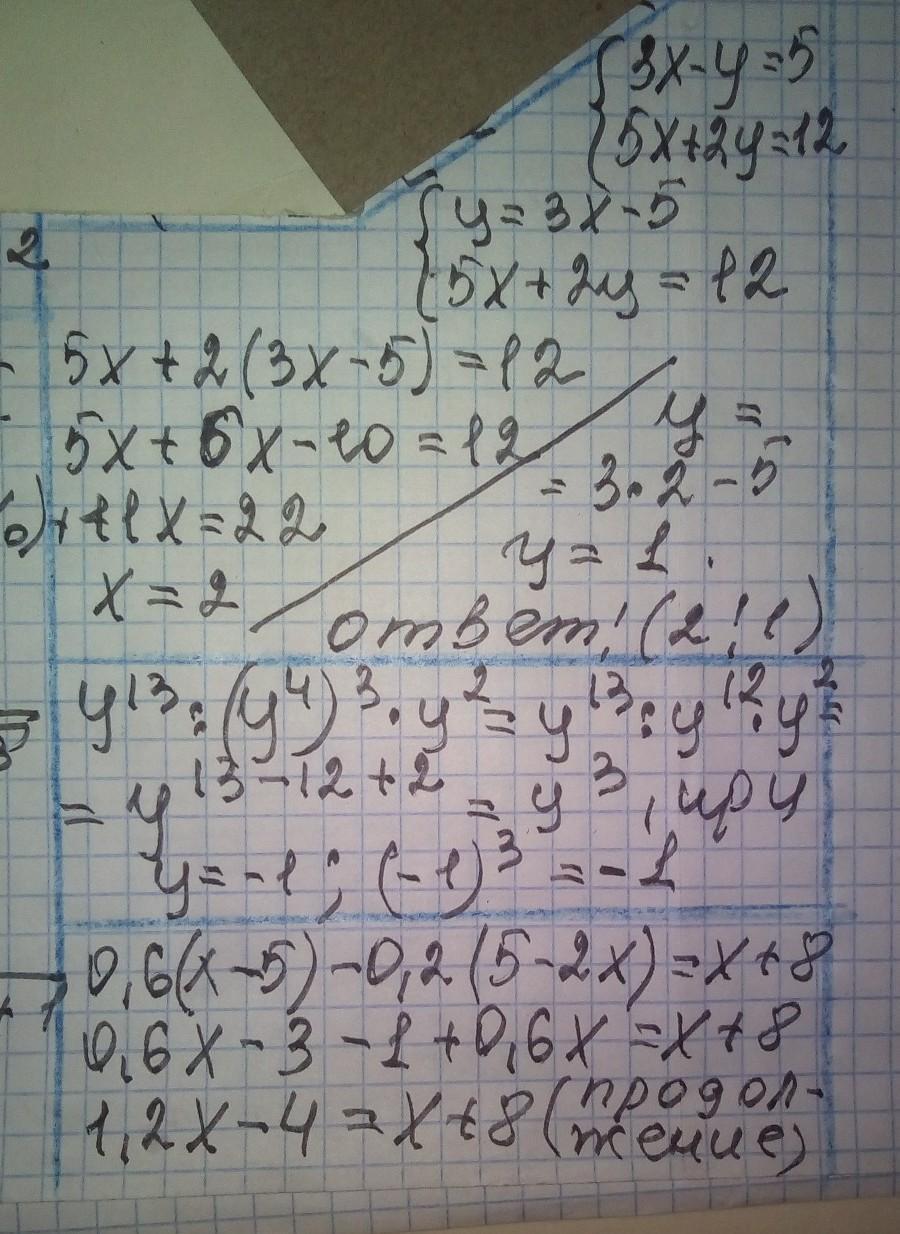 {3x-y=5
5x+2y=12
{y=3x-5
5x+2y=12
2
5x+2(3x-5)=12
5x+6x-10=12
y=
=3·2-5
б)+11x=22
y=1.
x=2
ответ: (2;1)
y¹³:(y⁴)³·y²=y¹³:y¹²·y²=
=y¹³⁻¹²⁺²=y³, при
y=-1; (-1)³=-1
0,6(x-5)-0,2(5-2x)=x+8
0,6x-3-1+0,6x=x+8
1,2x-4=x+8 (продол-
жение)